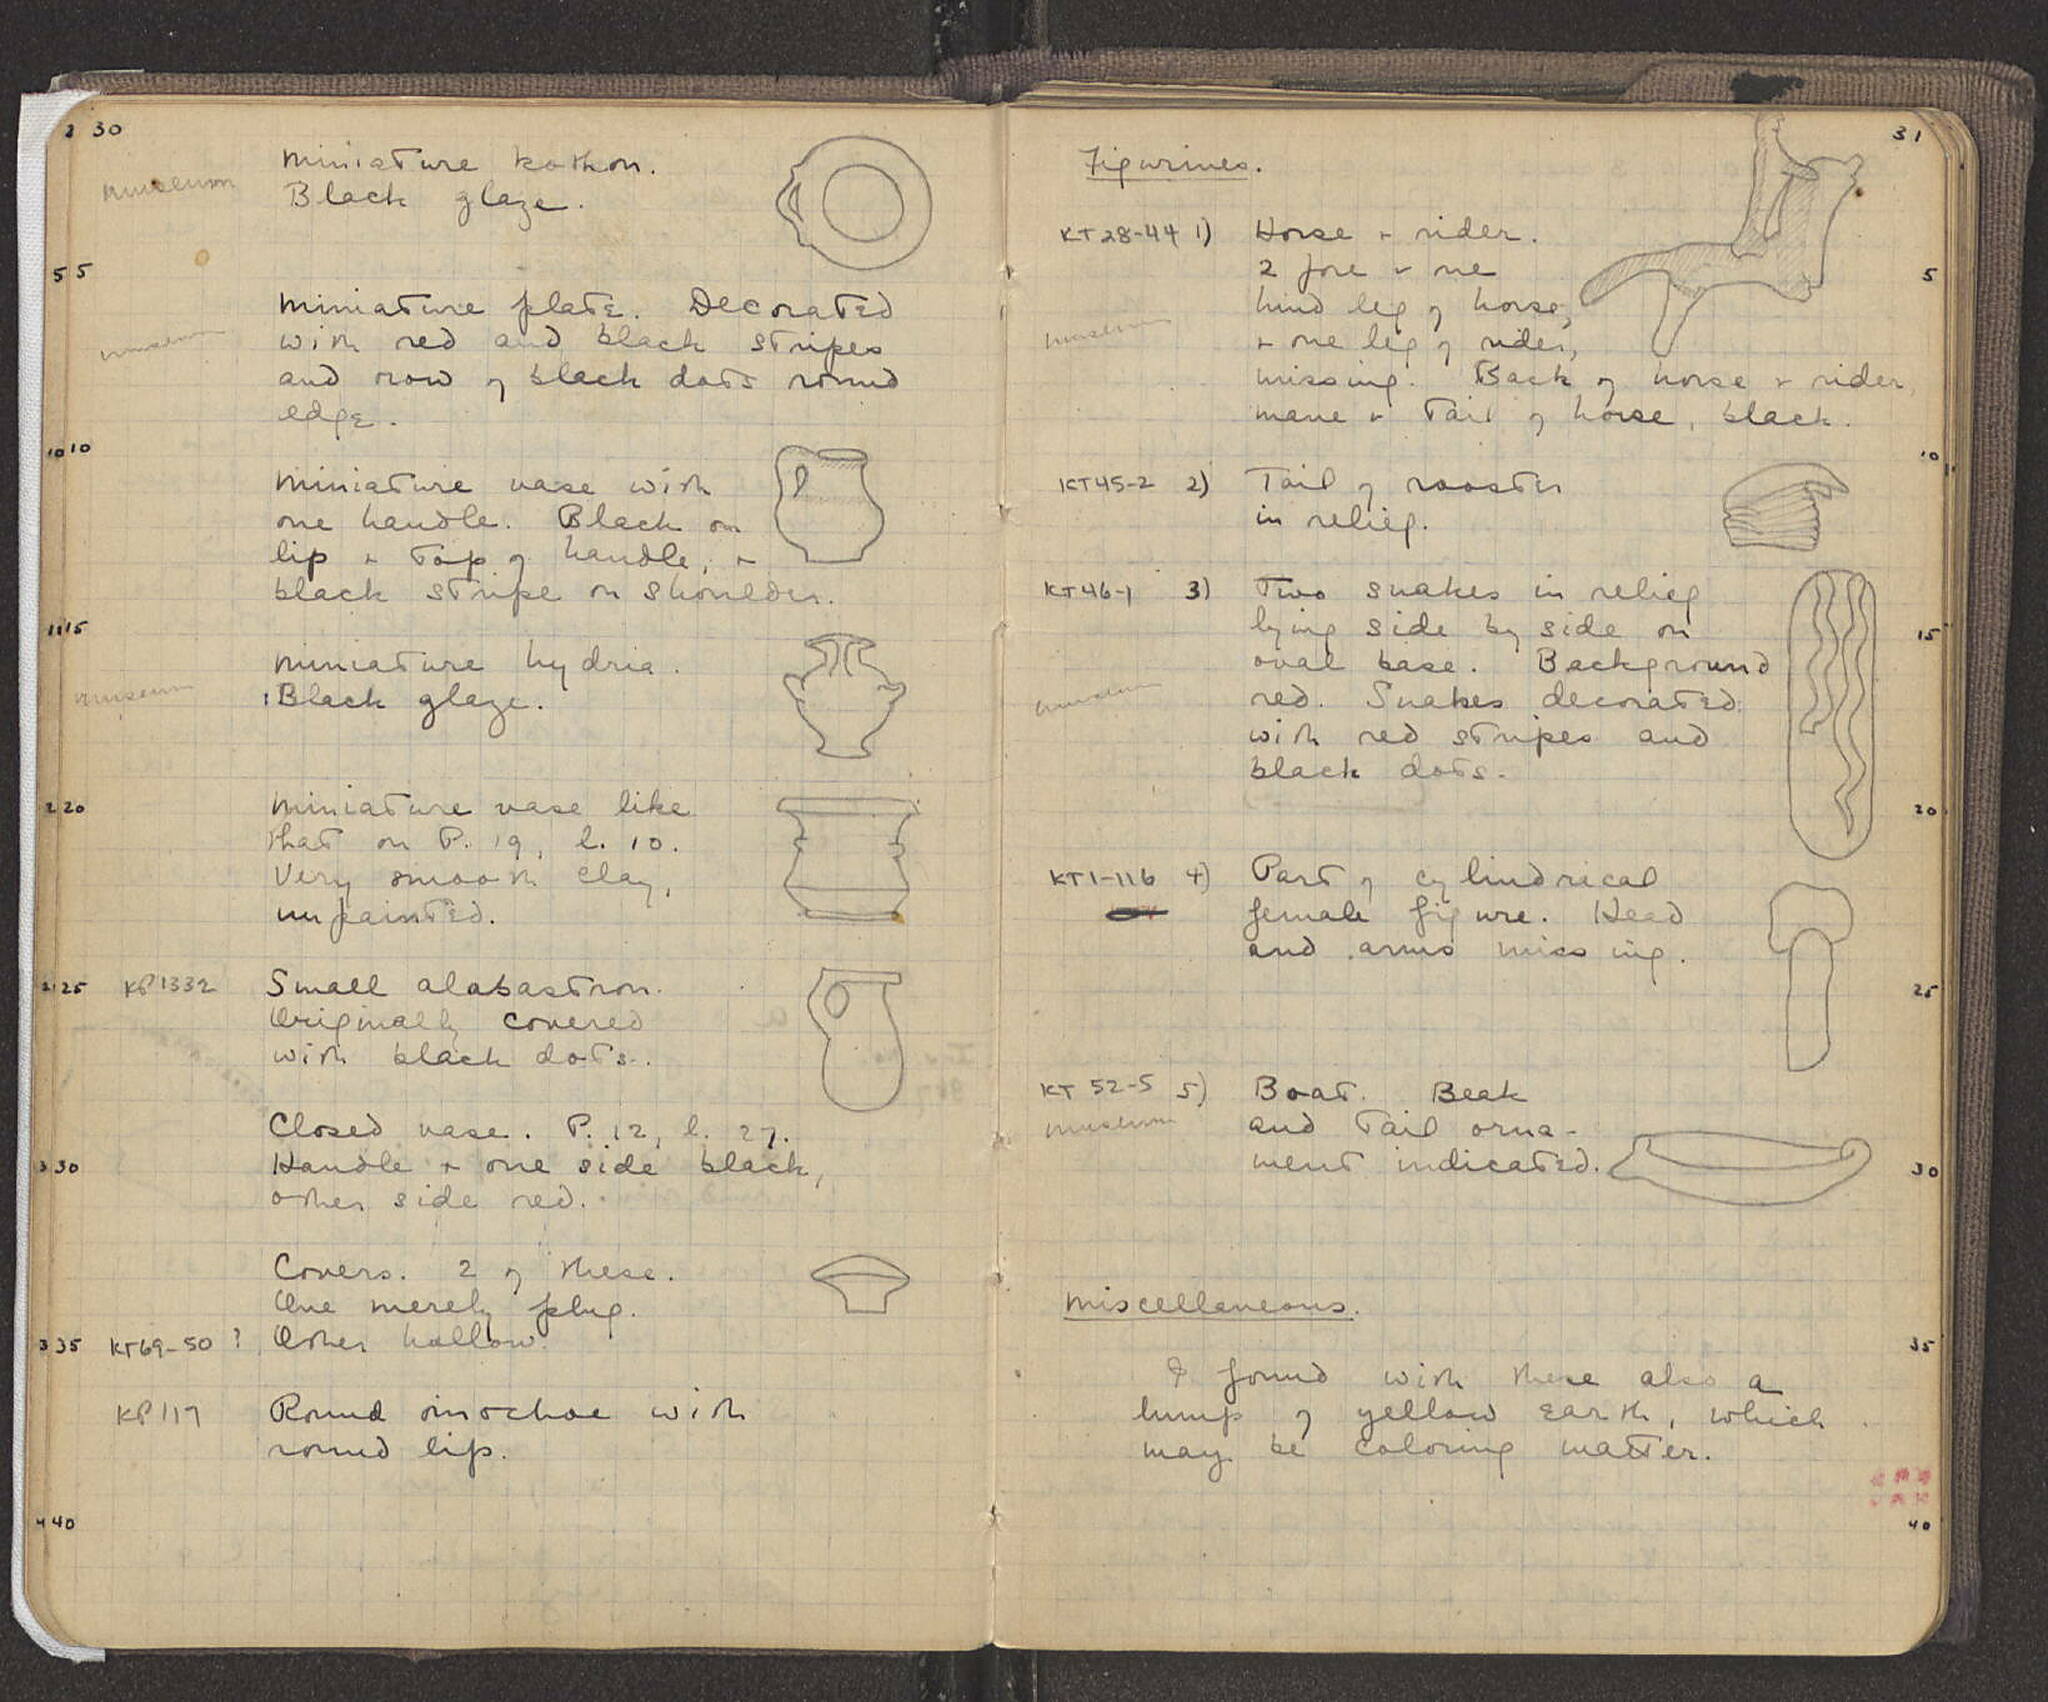 30
museum
Miniature kothon.
Black glaze.
5
museum
Miniature plate. Decorated
with red and black stripes
and row of black dots round
edge.
10
Miniature vase with
one handle. Black on
lip + top of handle, +
black stripe on shoulder.
15
museum
Miniature hydria.
Black glaze.
20
Miniature vase like
that on P. 19, l. 10.
Very smooth clay,
unpainted.
25 KP1332
Small alabastron.
Originally covered
with black dots.
Closed vase. P. 12, l. 27.
30
Handle + one side black,
other side red.
Covers. 2 of these.
One merely plug.
35 KT69-50 ? Other hollow.
KP117 Round oinochoe with
round lip.
40
31
Figurines.
KT28-44 1) Horse + rider.
2 fore + one
5
hind leg of horse,
museum
+ one leg of rider,
missing. Back of horse + rider,
mane + tail of horse, black.
10
KT45-2 2) Tail of rooster
in relief.
KT46-1 3) Two snakes in relief
lying side by side on
15
oval base. Background
museum
red. Snakes decorated
with red stripes and
black dots.
20
KT1-116 4) Part of cylindrical
female figure. Head
and arms missing.
25
KT 52-5 5) Boat. Beak
museum
and tail orna-
ment indicated.
30
Miscellaneous.
35
I found with these also a
lump of yellow earth, which
may be coloring matter.
40